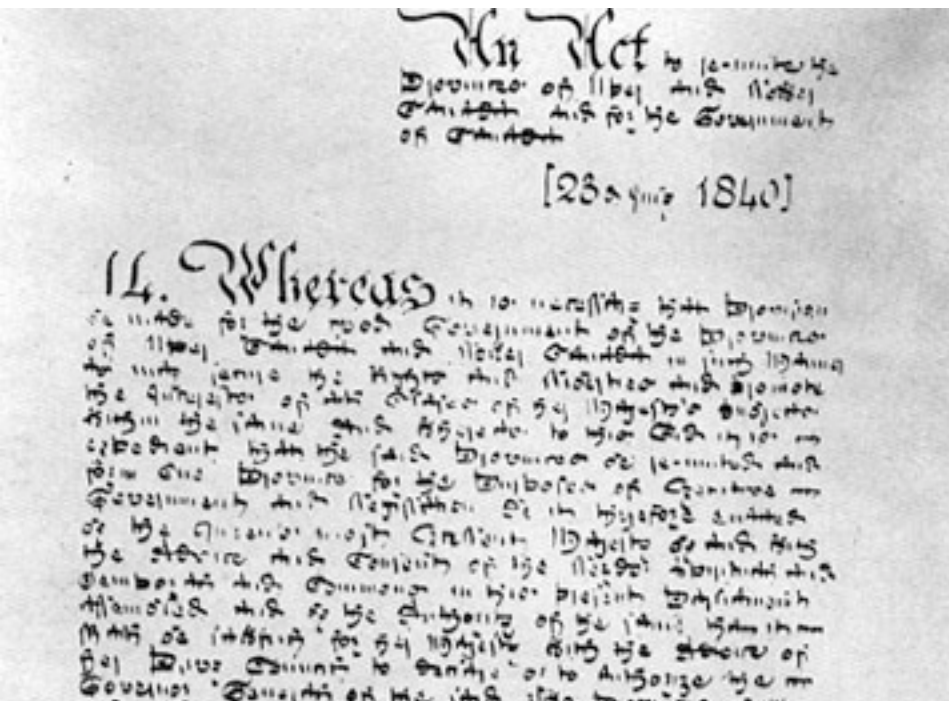 An Act to re-unite the
Provinces of Upper and Lower
Canada and for the Government
of Canada
[23d July 1840]
14. Whereas it is necessary that Provision
be made for the good Government of the Provinces
of Upper Canada and Lower Canada in such Manner
as may secure the Rights and Liberties and promote
the Interests of all Classes of Her Majesty's Subjects
within the same And Whereas to this End it is
expedient that the said Provinces be re-united and
form One Province for the Purposes of Executive
Government and Legislation Be it therefore enacted
by the Queen's most Excellent Majesty by and with
the Advice and Consent of the Lords Spiritual and
Temporal and Commons in this present Parliament
Assembled and by the Authority of the same That it
shall be lawful for Her Majesty with the Advice of
Her Privy Council to declare or to Authorize the
Governor General of the said